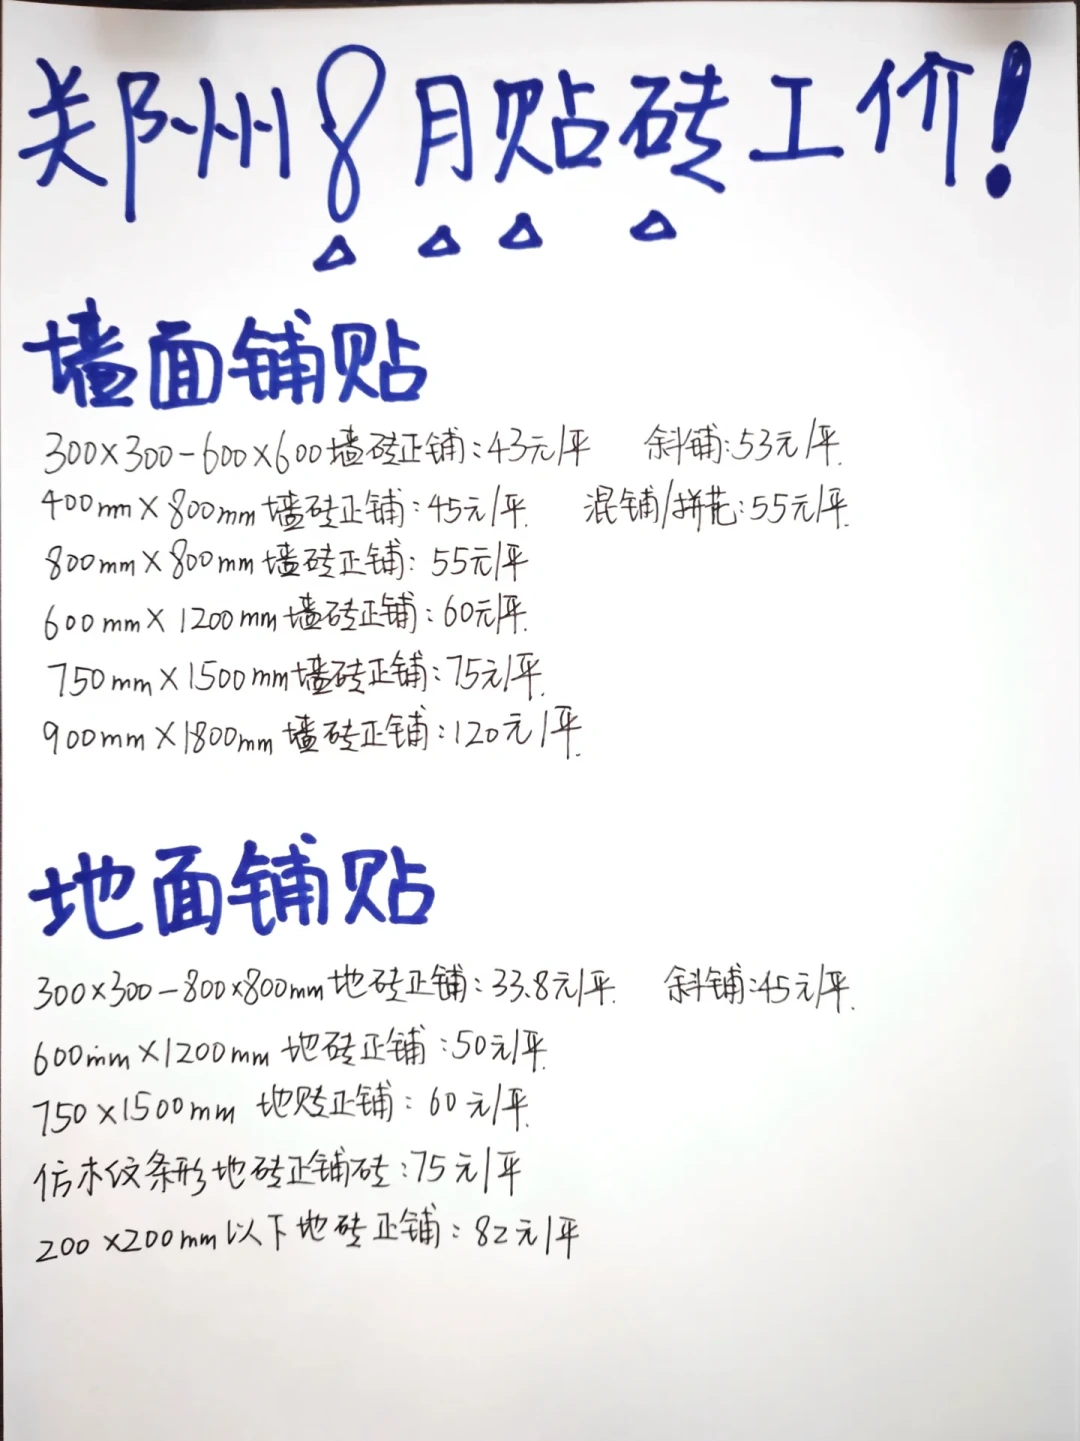 郑州8月贴砖工价!
墙面铺贴
300×300-600×600墙砖正铺:43元/平 斜铺:53元/平
400mm×800mm墙砖正铺:45元/平 混铺/拼花:55元/平
800mm×800mm墙砖正铺:55元/平
600mm×1200mm墙砖正铺:60元/平
750mm×1500mm墙砖正铺:75元/平
900mm×1800mm墙砖正铺:120元/平
地面铺贴
300×300-800×800mm地砖正铺:33.8元/平 斜铺:45元/平
600mm×1200mm地砖正铺:50元/平
750×1500mm 地贴正铺:60元/平
仿木纹条形地砖正铺砖:75元/平
200×200mm以下地砖正铺:82元/平